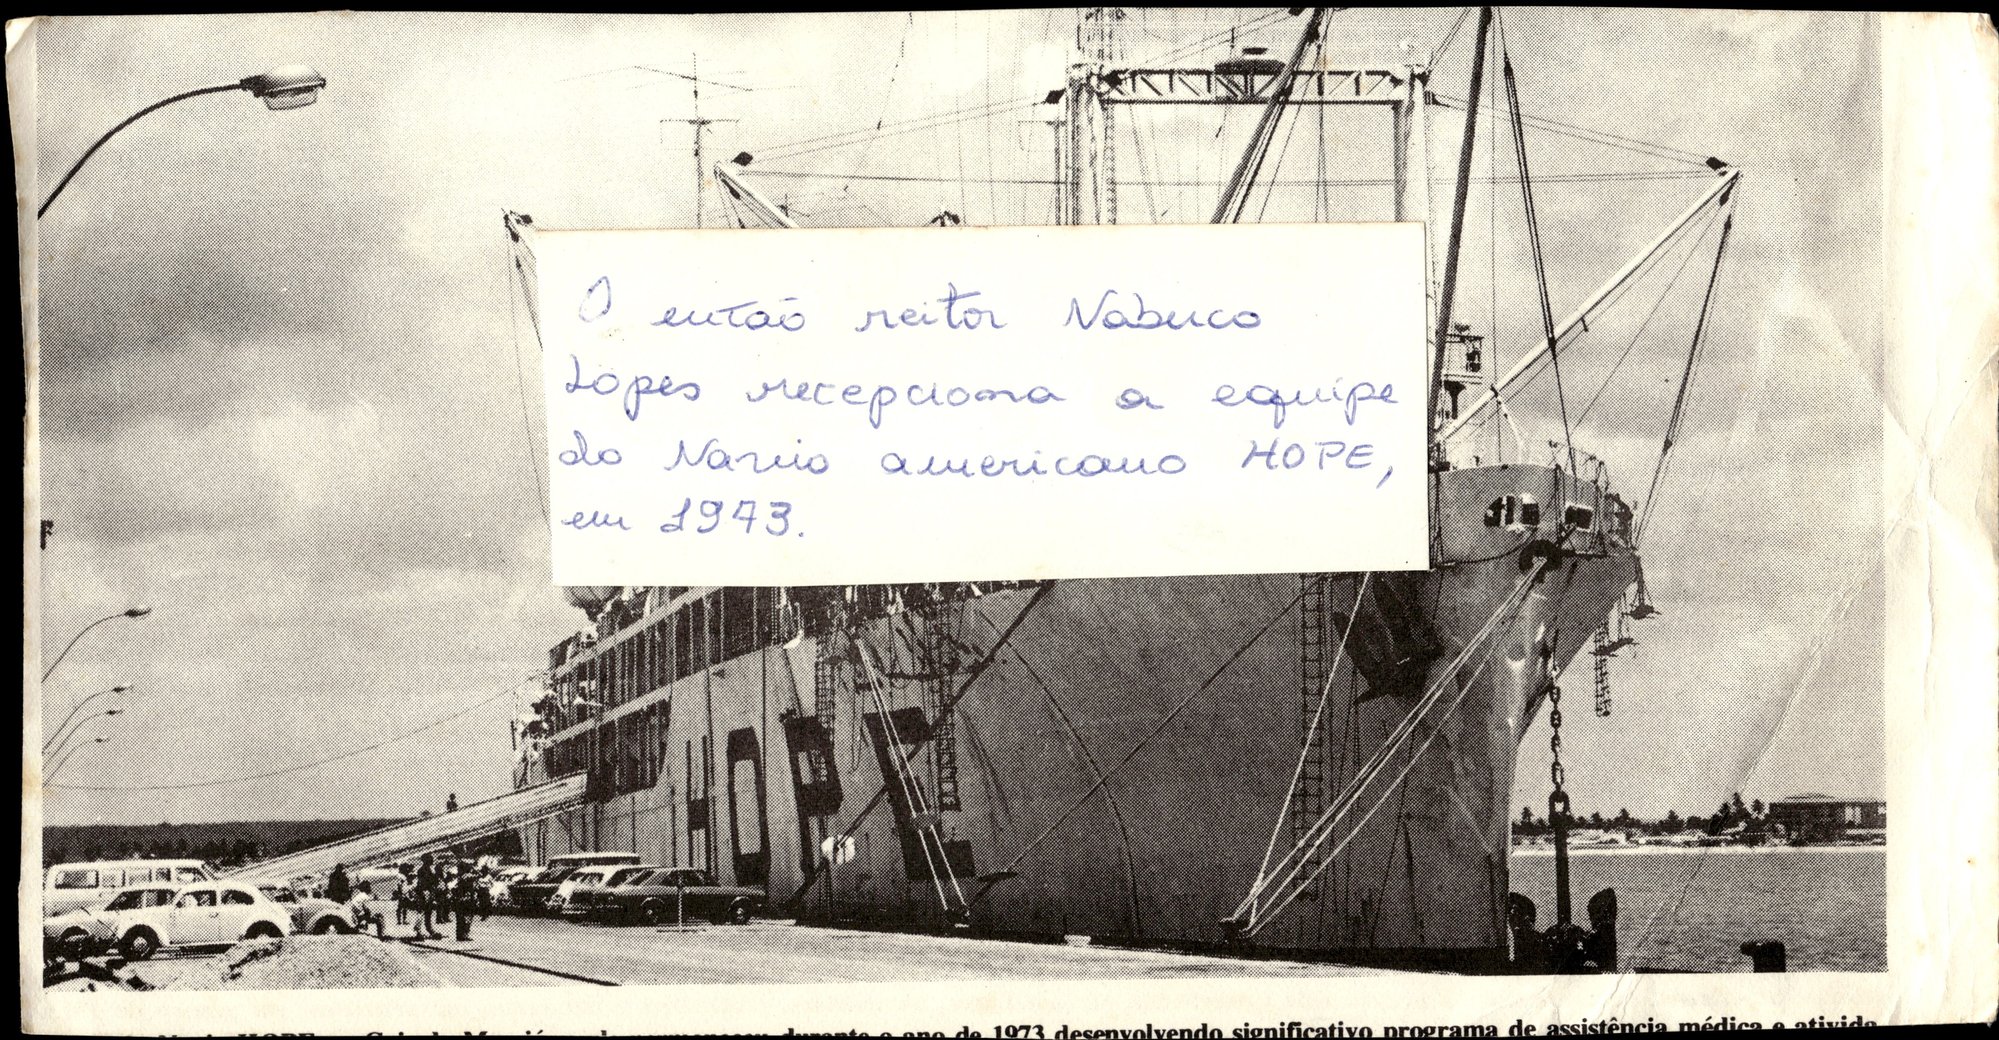 O então reitor Nabuco
Lopes recepciona a equipe
do Navio americano HOPE,
em 1973.
HOPE
Navio HOPE no Cais de Maceió, onde permaneceu durante o ano de 1973 desenvolvendo significativo programa de assistência médica e ativida